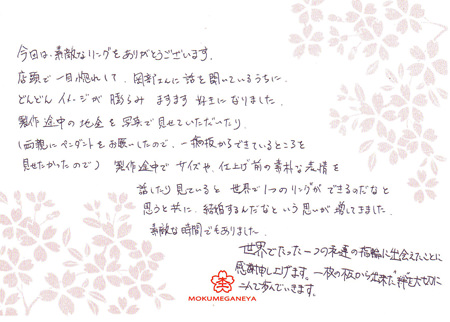 今日は、素敵なリングをありがとうございます。
店頭で一目惚れして、岡部さんに話を聞いているうちに、
どんどんイメージが膨らみ ますます好きになりました。
製作途中の地金を写真で見せていただいたり、
(両親にペンダントをお願いしたので、一摘板からできているところを
見せたかったので) 製作途中でサイズや、仕上げ前の素朴な表情を
話したり見ていると 世界で1つのリングができるのだなと
思うと共に、結婚するんだなという思いが増してきました。
素敵な時間でもありました。
世界でたった一つの木運の指輪に出会えたことに
感謝申し上げます。一枚の板から出来た"絆"を大切に
二人で歩んでいきます。
MOKUMEGANEYA